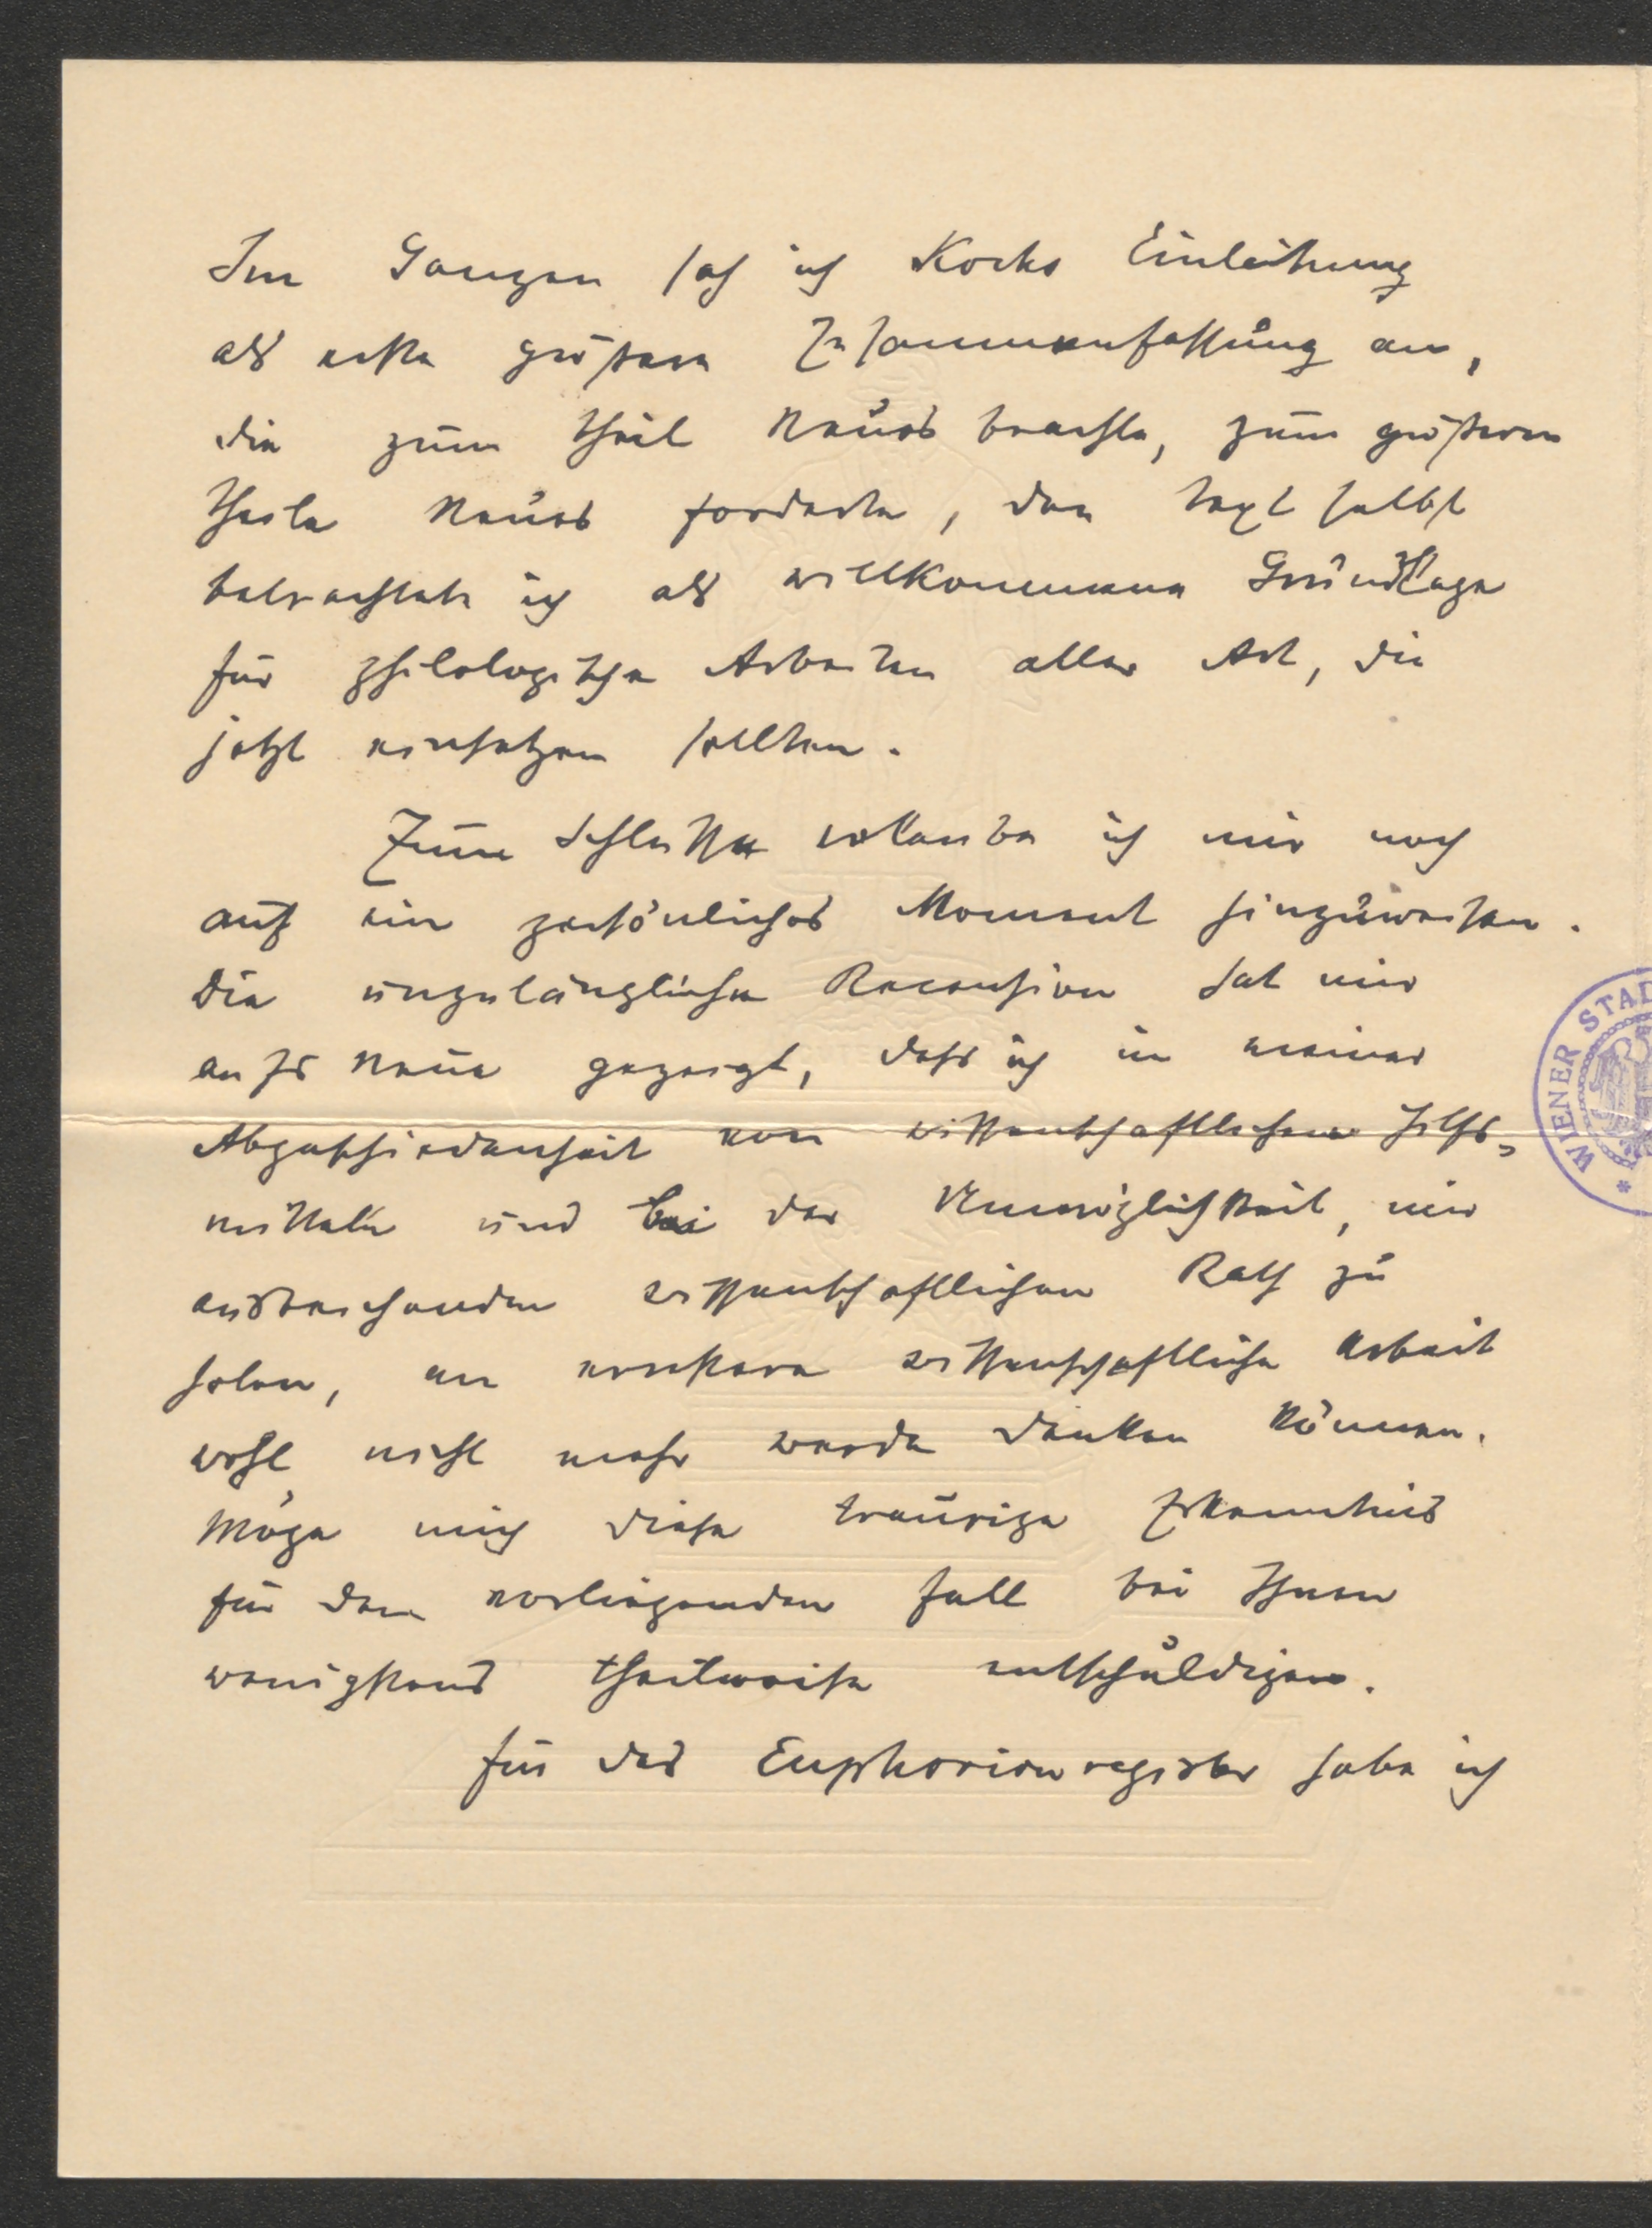 Im Ganzen sah ich Kochs Einleitung
als erste grössere Zusammenfassung an,
die zum Theil Neues brachte, zum grösseren
Theile Neues forderte, den Text selbst
betrachtete ich als willkommene Grundlage
für philologische Arbeiten aller Art, die
jetzt einsetzen sollten.
Zum Schlusse erlaube ich mir noch
auf ein persönliches Moment hinzuweisen.
Die unzulängliche Recension hat mir
aufs Neue gezeigt, dass ich in meiner
Abgeschiedenheit von wissenschaftlichen Hilfs-
mitteln und bei der Unmöglichkeit, mir
ausreichenden wissenschaftlichen Rath zu
holen, an ernstere wissenschaftliche Arbeit
wohl nicht mehr werde denken können.
Möge mich diese traurige Erkenntnis
für den vorliegenden Fall bei Ihnen
wenigstens theilweise entschuldigen.
Für das Euphorionregister habe ich
WIENER STAD